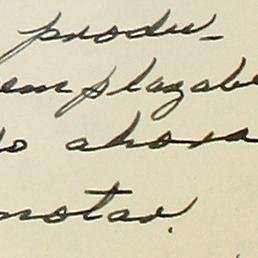 produ-
emplazabl
do ahora
notar.